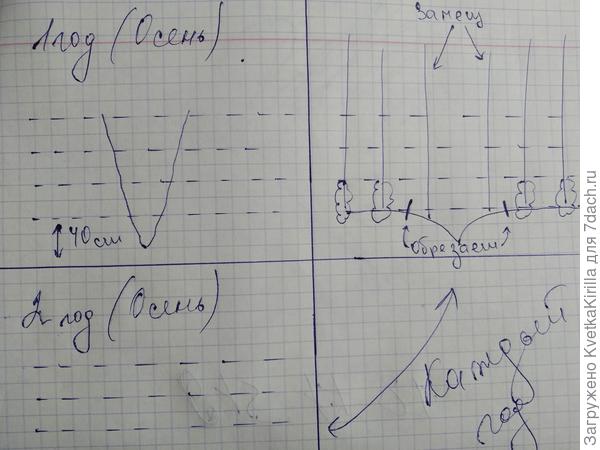 1 год (Осень)
40 см
Замещ
Обрезаем
2 год (Осень)
Каждый
год
Загружено KvetkaKirilla для 7dach.ru